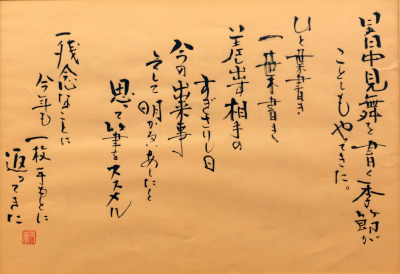 暑中見舞を書く季節が
ことしもやってきた。
ひと葉書き
一葉書く
差し出す相手の
すぎさりし日
今の出来事
そして明かるいあしたを
思って筆をススメル
残念なことに
今年も一枚手もとに
返ってきた